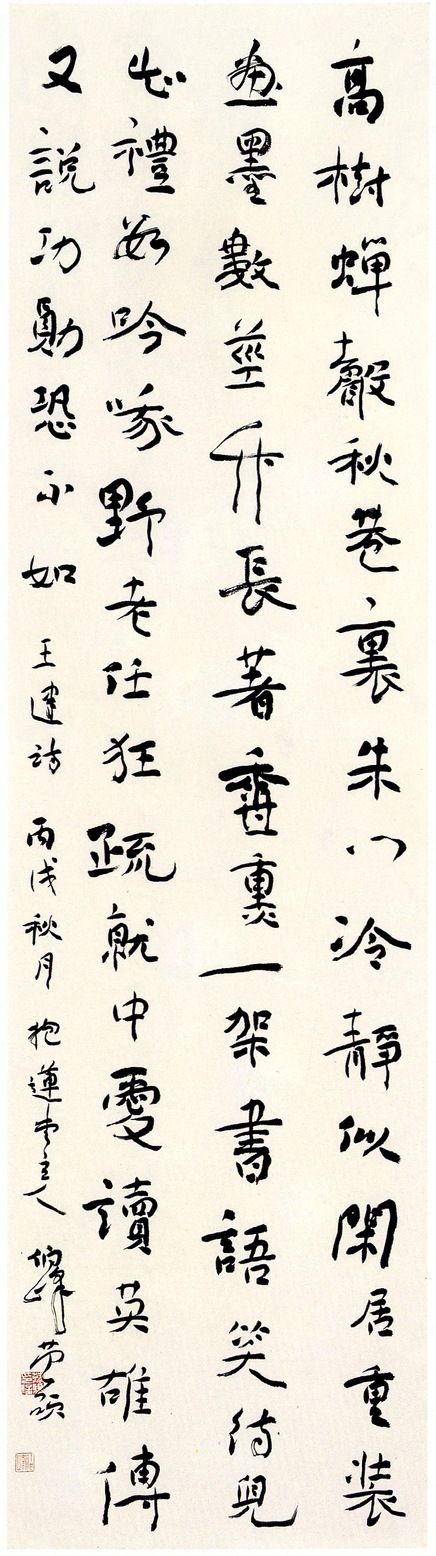 高樹蟬聲秋巷裏朱門冷靜似閑居重裝
畫墨數莖竹長著香熏一架書語笑侍兒
知禮數吟哦野老任狂疏就中愛讀英雄傳
又說功勳恐不如 王建詩 丙戌秋月 抱蓮堂主人